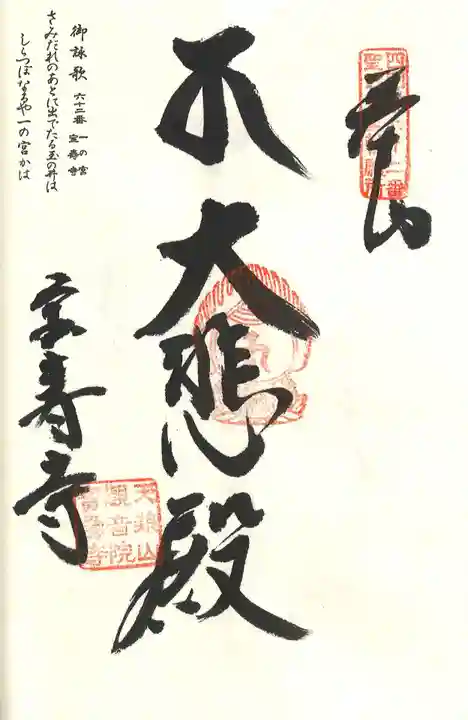 奉山
大悲殿
宝寿寺
天養山
観音院
宝寿寺
御詠歌 六十二番 一の宮 宝寿寺
さみだれのあとに出でたる玉の井は
しらつぼなるや一の宮かは